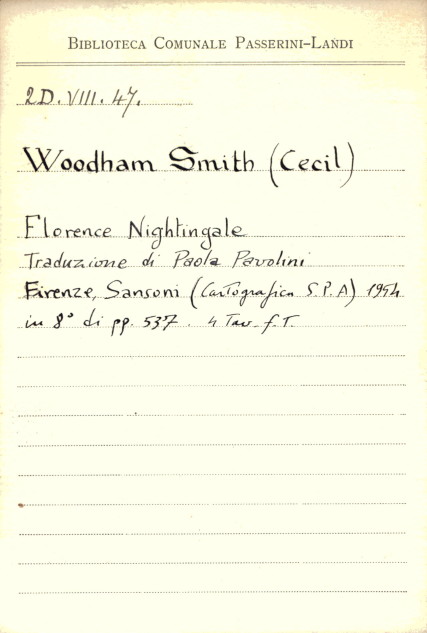 BIBLIOTECA COMUNALE PASSERINI-LANDI
2D. VIII. 47.
Woodham Smith (Cecil)
Florence Nightingale
Traduzione di Paola Pavolini
Firenze, Sansoni (Cartografica S.P.A) 1954
in 8° di pp. 537. 4 Tav. f.T.